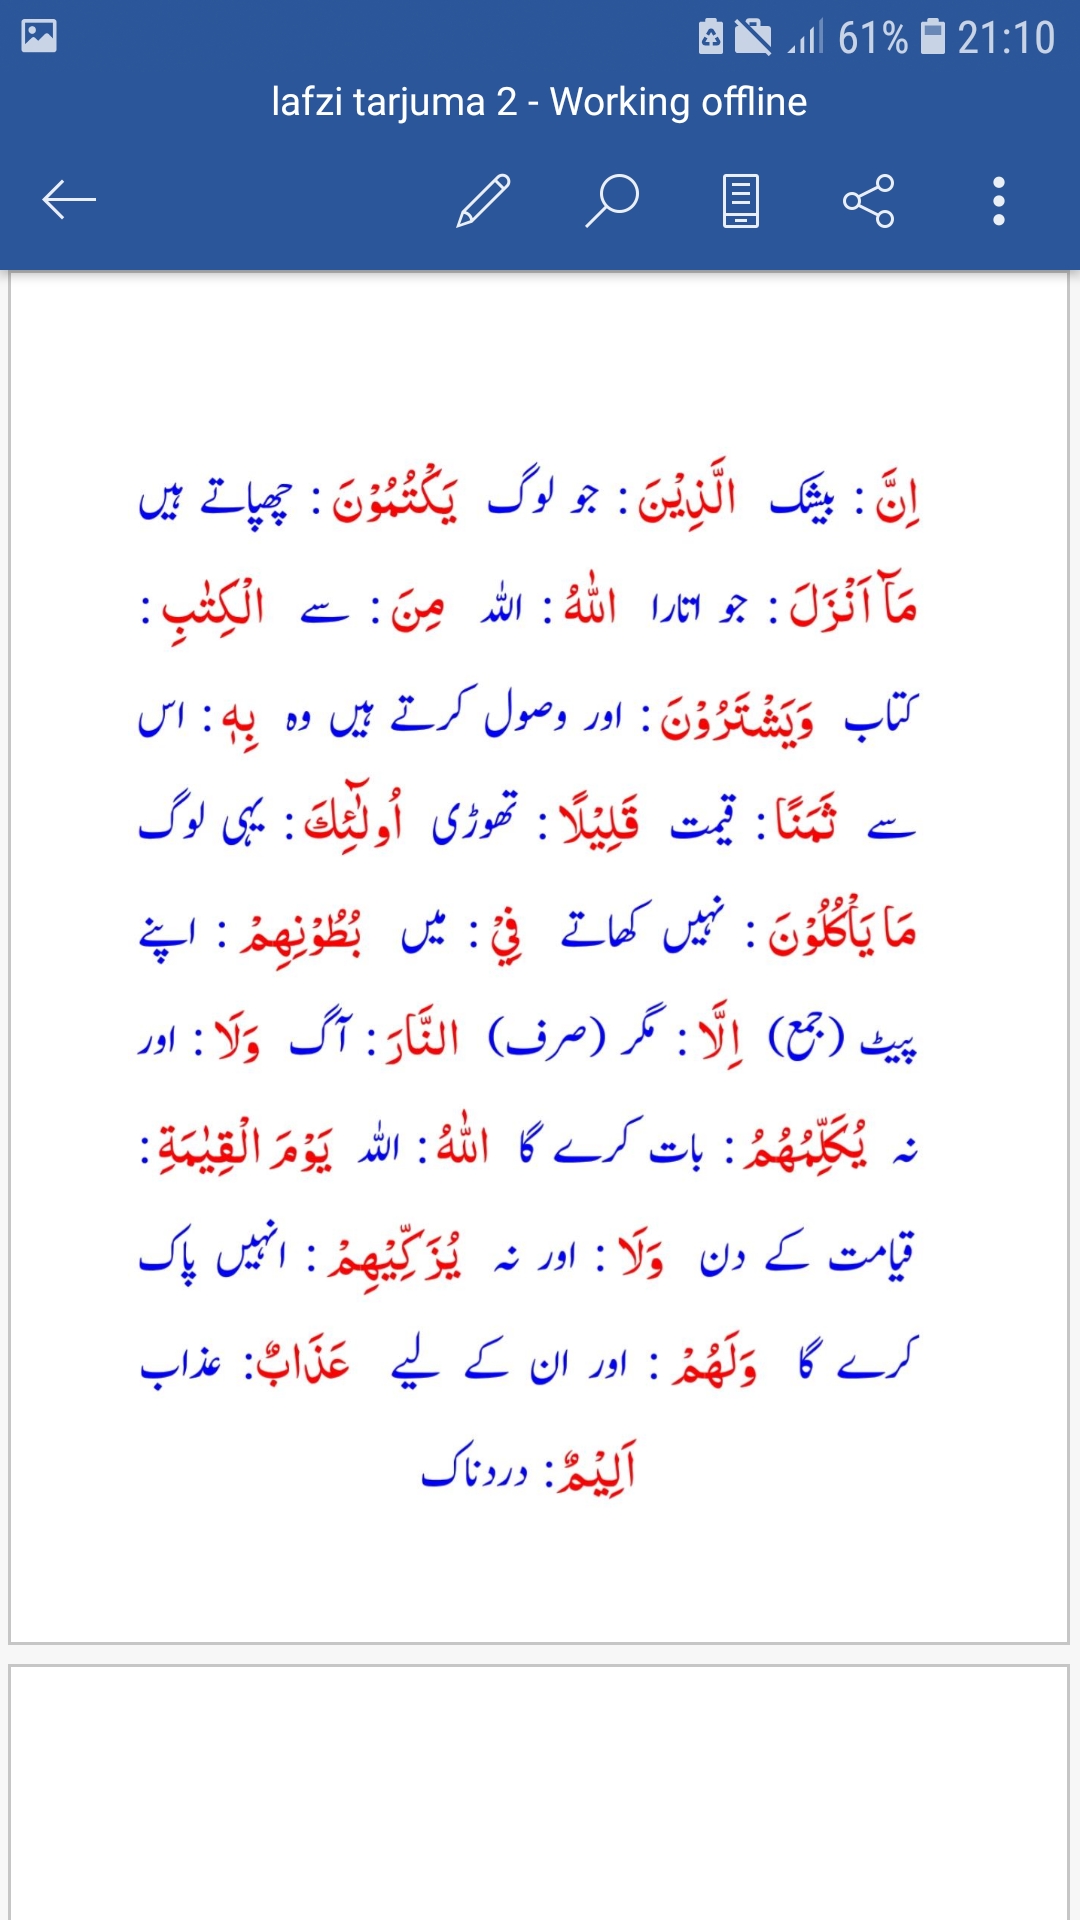 61% 21:10
lafzi tarjuma 2 - Working offline
اِنَّ : بیشک الَّذِيْنَ : جو لوگ يَكْتُمُوْنَ : چھپاتے ہیں
مَآ اَنْزَلَ : جو اتارا اللّٰهُ : اللہ مِنَ : سے الْكِتٰبِ :
کتاب وَيَشْتَرُوْنَ : اور وصول کرتے ہیں وہ بِهٖ : اس
سے ثَمَنًا : قیمت قَلِيْلًا : تھوڑی اُولٰٓئِكَ : یہی لوگ
مَا يَاْكُلُوْنَ : نہیں کھاتے فِيْ : میں بُطُوْنِهِمْ : اپنے
پیٹ (جمع) اِلَّا : مگر (صرف) النَّارَ : آگ وَلَا : اور
نہ يُكَلِّمُهُمُ : بات کرے گا اللّٰهُ : اللہ يَوْمَ الْقِيٰمَةِ :
قیامت کے دن وَلَا : اور نہ يُزَكِّيْهِمْ : انہیں پاک
کرے گا وَلَهُمْ : اور ان کے لیے عَذَابٌ : عذاب
اَلِيْمٌ : دردناک